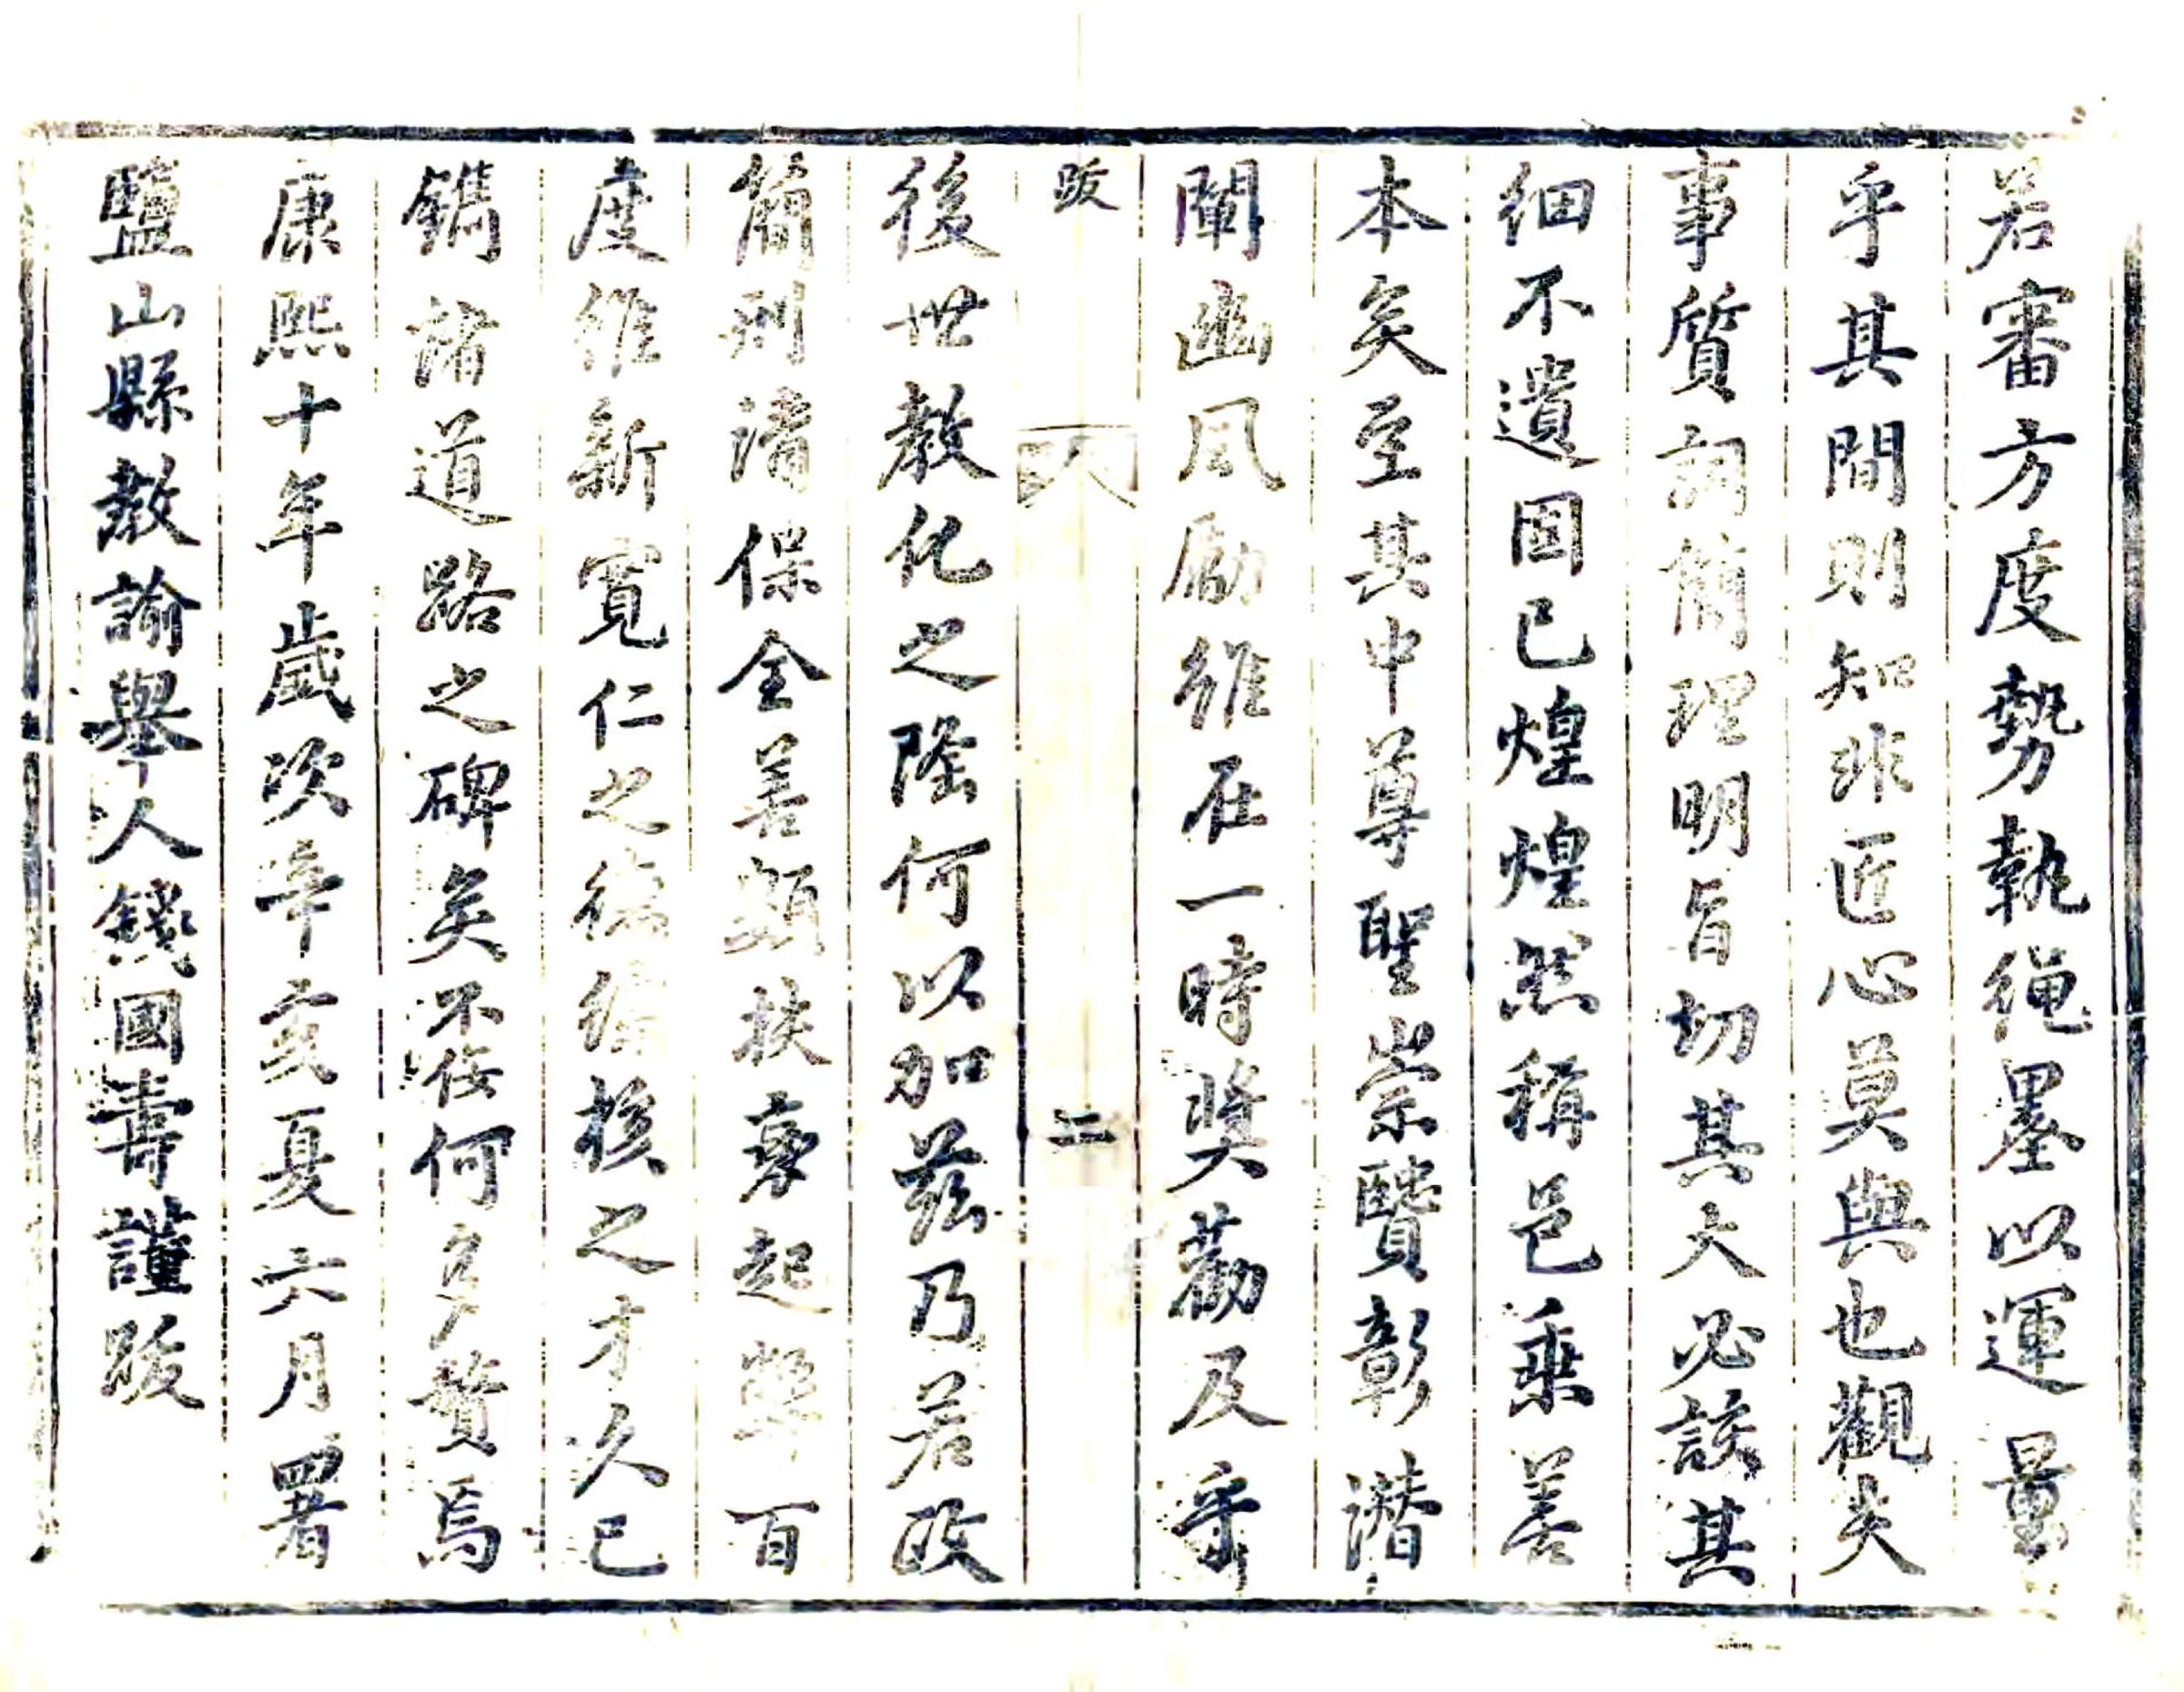 若審方度勢執繩墨以運量
乎其間則知非匠心莫與也觀夫
事質詞簡理明旨切其大必該其
細不遺固已煌煌然稱邑乘善
本矣至其中尊聖崇賢彰潛
闡幽風勵維在一時獎勸及乎
跋
二
後世教化之隆何以加茲乃若政
簡刑清保全善類扶衰起弊百
度維新寬仁之德綜核之才久已
鐫諸道路之碑矣不佞何多贊焉
康熙十年歲次辛亥夏六月署
鹽山縣教諭舉人錢國壽謹跋